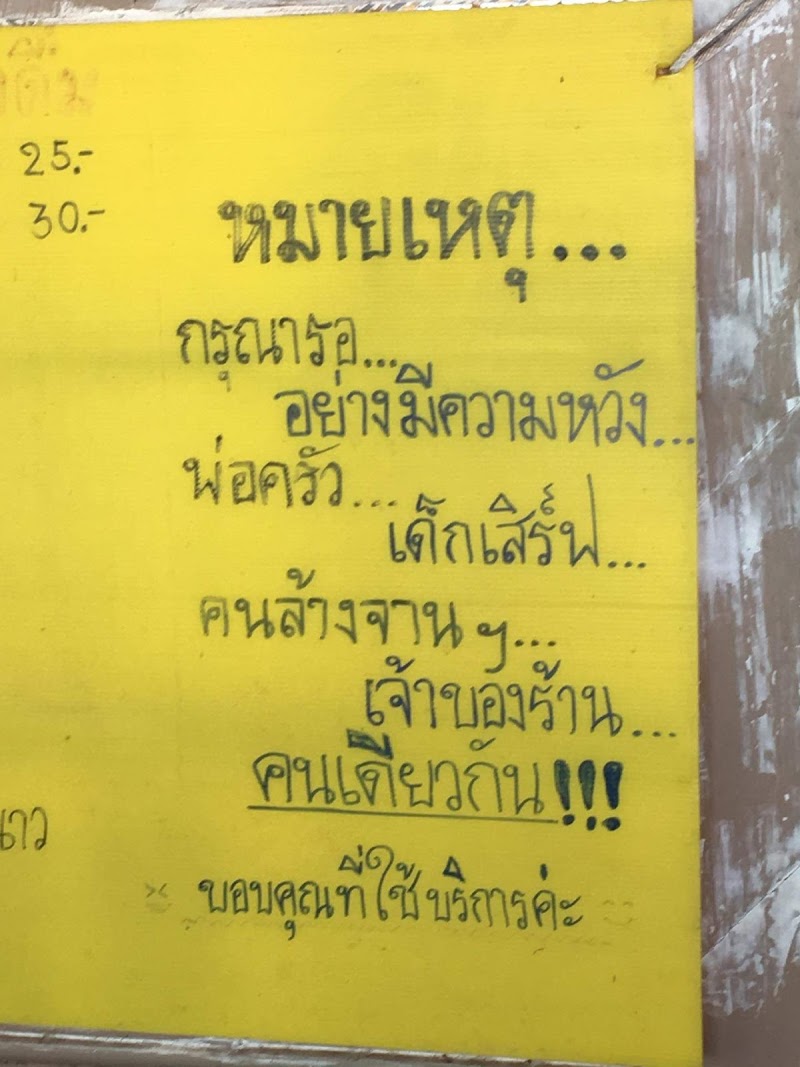 25.-
30.-
หมายเหตุ...
กรุณารอ...
อย่างมีความหวัง...
พ่อครัว...
เด็กเสิร์ฟ...
คนล้างจาน ฯ...
เจ้าของร้าน...
คนเดียวกัน!!!
ขอบคุณที่ใช้บริการค่ะ